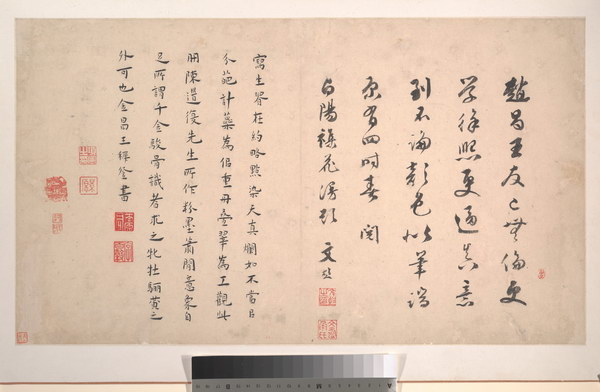 趙昌王友已無倫更
學徐熙更逼真意
到不論顏色似筆端
原有四時春 閱
白陽雜花漫題 文點
寫生在約略點染天真爛如不當以
分葩計蘂為重丹疊翠為工觀此
冊陳道復先生所作粉墨蕭閒意象自
足所謂千金駿骨識者求之牝牡驪黃之
外可也金昌王穉登書